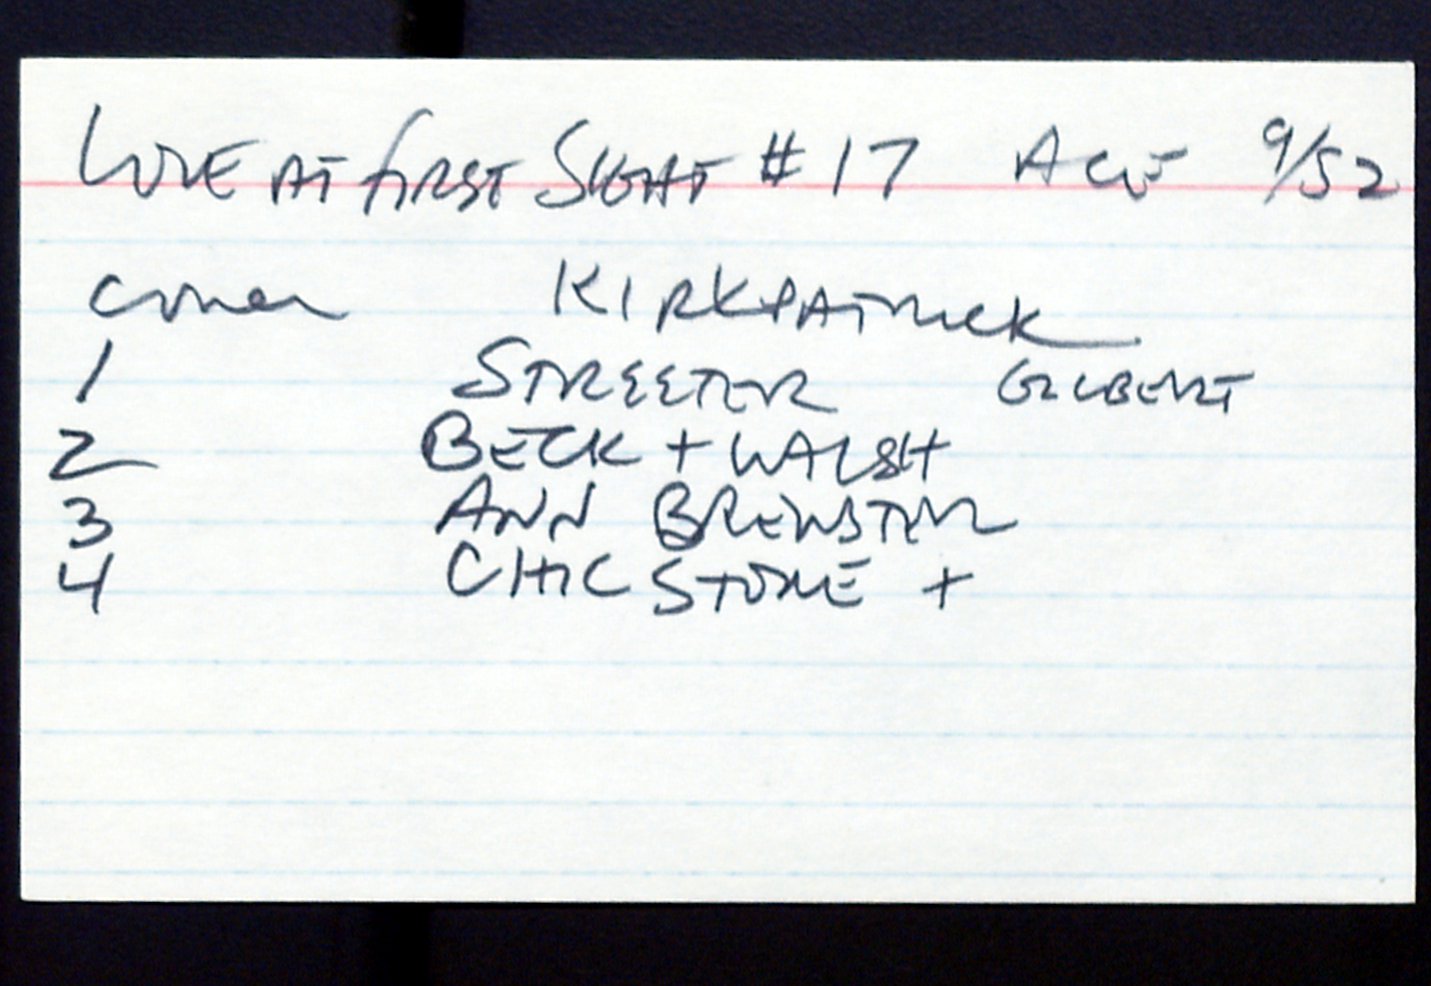 LOVE AT FIRST SIGHT #17 ACE 9/52
cover KIRKPATRICK
1 STREETER GILBERT
2 BECK + WALSH
3 ANN BREWSTER
4 CHIC STONE +